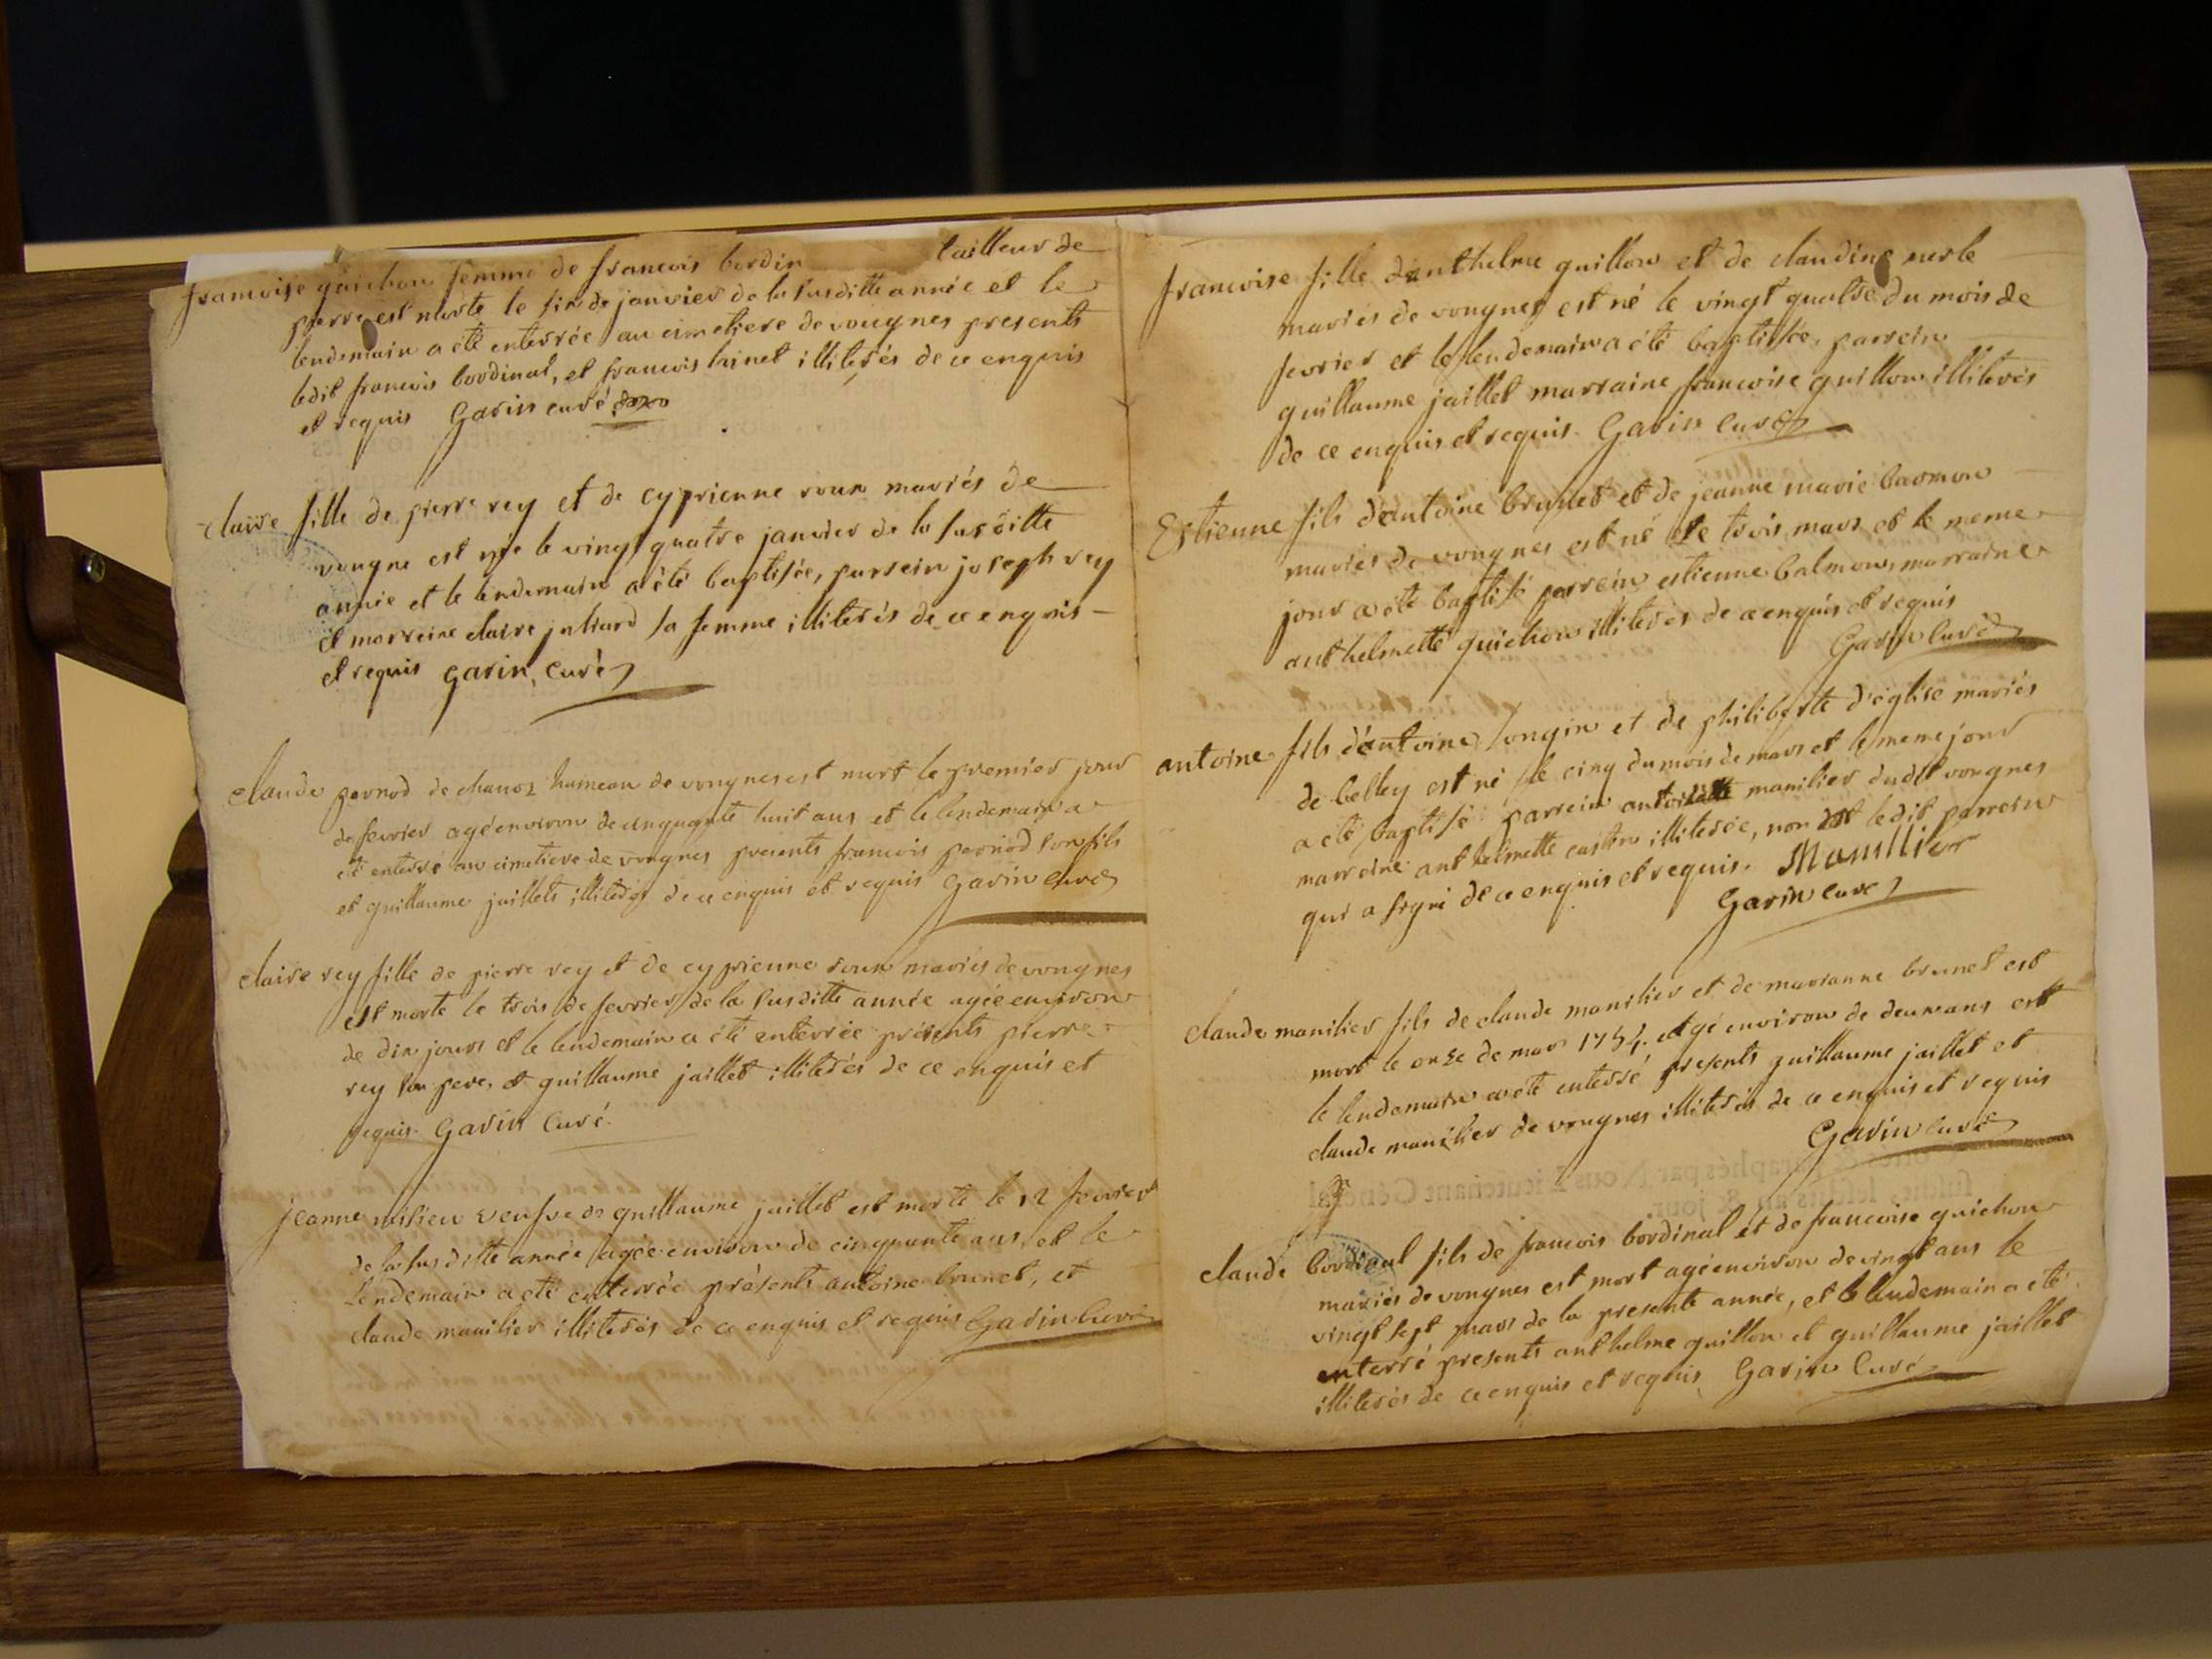 francoise guichon femme de francois bordin tailleur de
pierre est morte le six de janvier de la susditte année et le
lendemain a été enterrée au cimetiere de vougnes presents
ledit francois bordinal, et francois illiterés de ce enquis
et requis Garin curé
claire fille de pierre rey et de cyprienne roux mariés de
vougne est née le vingt quatre janvier de la susditte
année et le lendemain a été baptisée, parrein joseph rey
et marreine claire juliard sa femme illiterés de ce enquis
et requis garin, curé
claude pernod de chanoz hameau de vougnes est mort le premier jour
de fevrier agé environ de cinquante huit ans et le lendemain a
été enterré au cimetiere de vougnes presents francois pernod son fils
et guillaume jaillets illiterés de ce enquis et requis Garin curé
claire rey fille de pierre rey et de cyprienne roux mariés de vougnes
est morte le trois de fevrier de la susditte année agée environ
de dix jours et le lendemain a été enterrée présents pierre
rey son pere, et guillaume jaillet illiterés de ce enquis et
requis. Garin Curé.
jeanne milieu veufve de guillaume jaillet est morte le 12 fevrier
de la susditte année agée environ de cinquante ans, et le
Lendemain a été enterrée présents antoine brunet, et
claude manilier illiterés de ce enquis et requis Garin Curé
francoise fille d'anthelme guillon et de claudine merle
mariés de vougnes est né le vingt quatre du mois de
fevrier et le lendemain a été baptisée, parrein
guillaume jaillet marraine francoise guillon illiterés
de ce enquis et requis. Garin Curé
Estienne fils d'antoine brunet et de jeanne marie barmon
mariés de vougnes est né le trois mars et le meme
jour a été baptisé parrein estienne balmon, marraine
anthelmette guichon illiterés de ce enquis et requis
Garin Curé
antoine fils d'antoine longin et de philiberte d'église mariés
de belley est né le cinq du mois de mars et le meme jour
a été baptisé parrein antoine manilier dudit vougnes
marreine anthelmette castin illiterée, non ledit parrein
qui a signé de ce enquis et requis. Manillier
Garin curé
claude manilier fils de claude manilier et de marianne brunet est
mort le onze de mars 1754. agé environ de deux ans et
le lendemain a été enterré presents guillaume jaillet et
claude manilier de vougnes illiterés de ce enquis et requis
Garin curé
claude bordinal fils de francois bordinal et de francoise guichon
mariés de vougnes est mort agé environ de vingt ans le
vingt sept mars de la presente année, et le lendemain a été
enterré presents anthelme guillon et guillaume jaillet
illiterés de ce enquis et requis Garin Curé